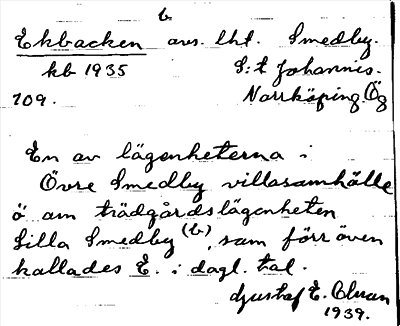 b
Ekbacken avs. lht. Smedby.
kb 1935 S:t Johannis.
109. Norrköping. Ög
En av lägenheterna i
Övre Smedby villasamhälle
ö om trädgårdslägenheten
Lilla Smedby (b), som förr även
kallades E. i dagl. tal.
Gustaf E.
1939.